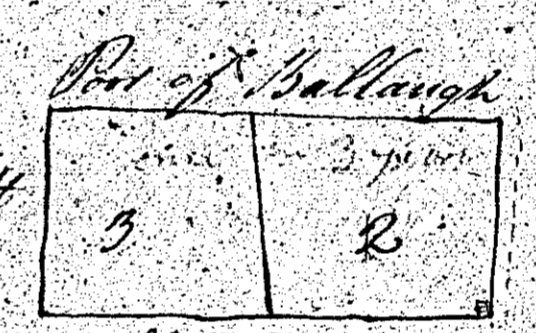 Poor of Ballaugh
3 2